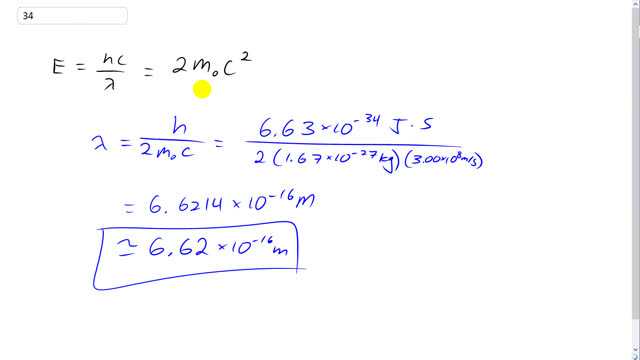 34
E = hc/λ = 2m₀c²
λ = h/(2m₀c) = 6.63×10⁻³⁴ J·s / 2(1.67×10⁻²⁷kg)(3.00×10⁸m/s)
= 6.6214×10⁻¹⁶m
≃ 6.62×10⁻¹⁶m